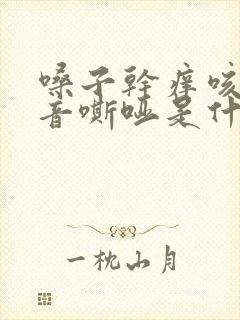 嗓子幹痒咳
音嘶哑是什
一枕山月